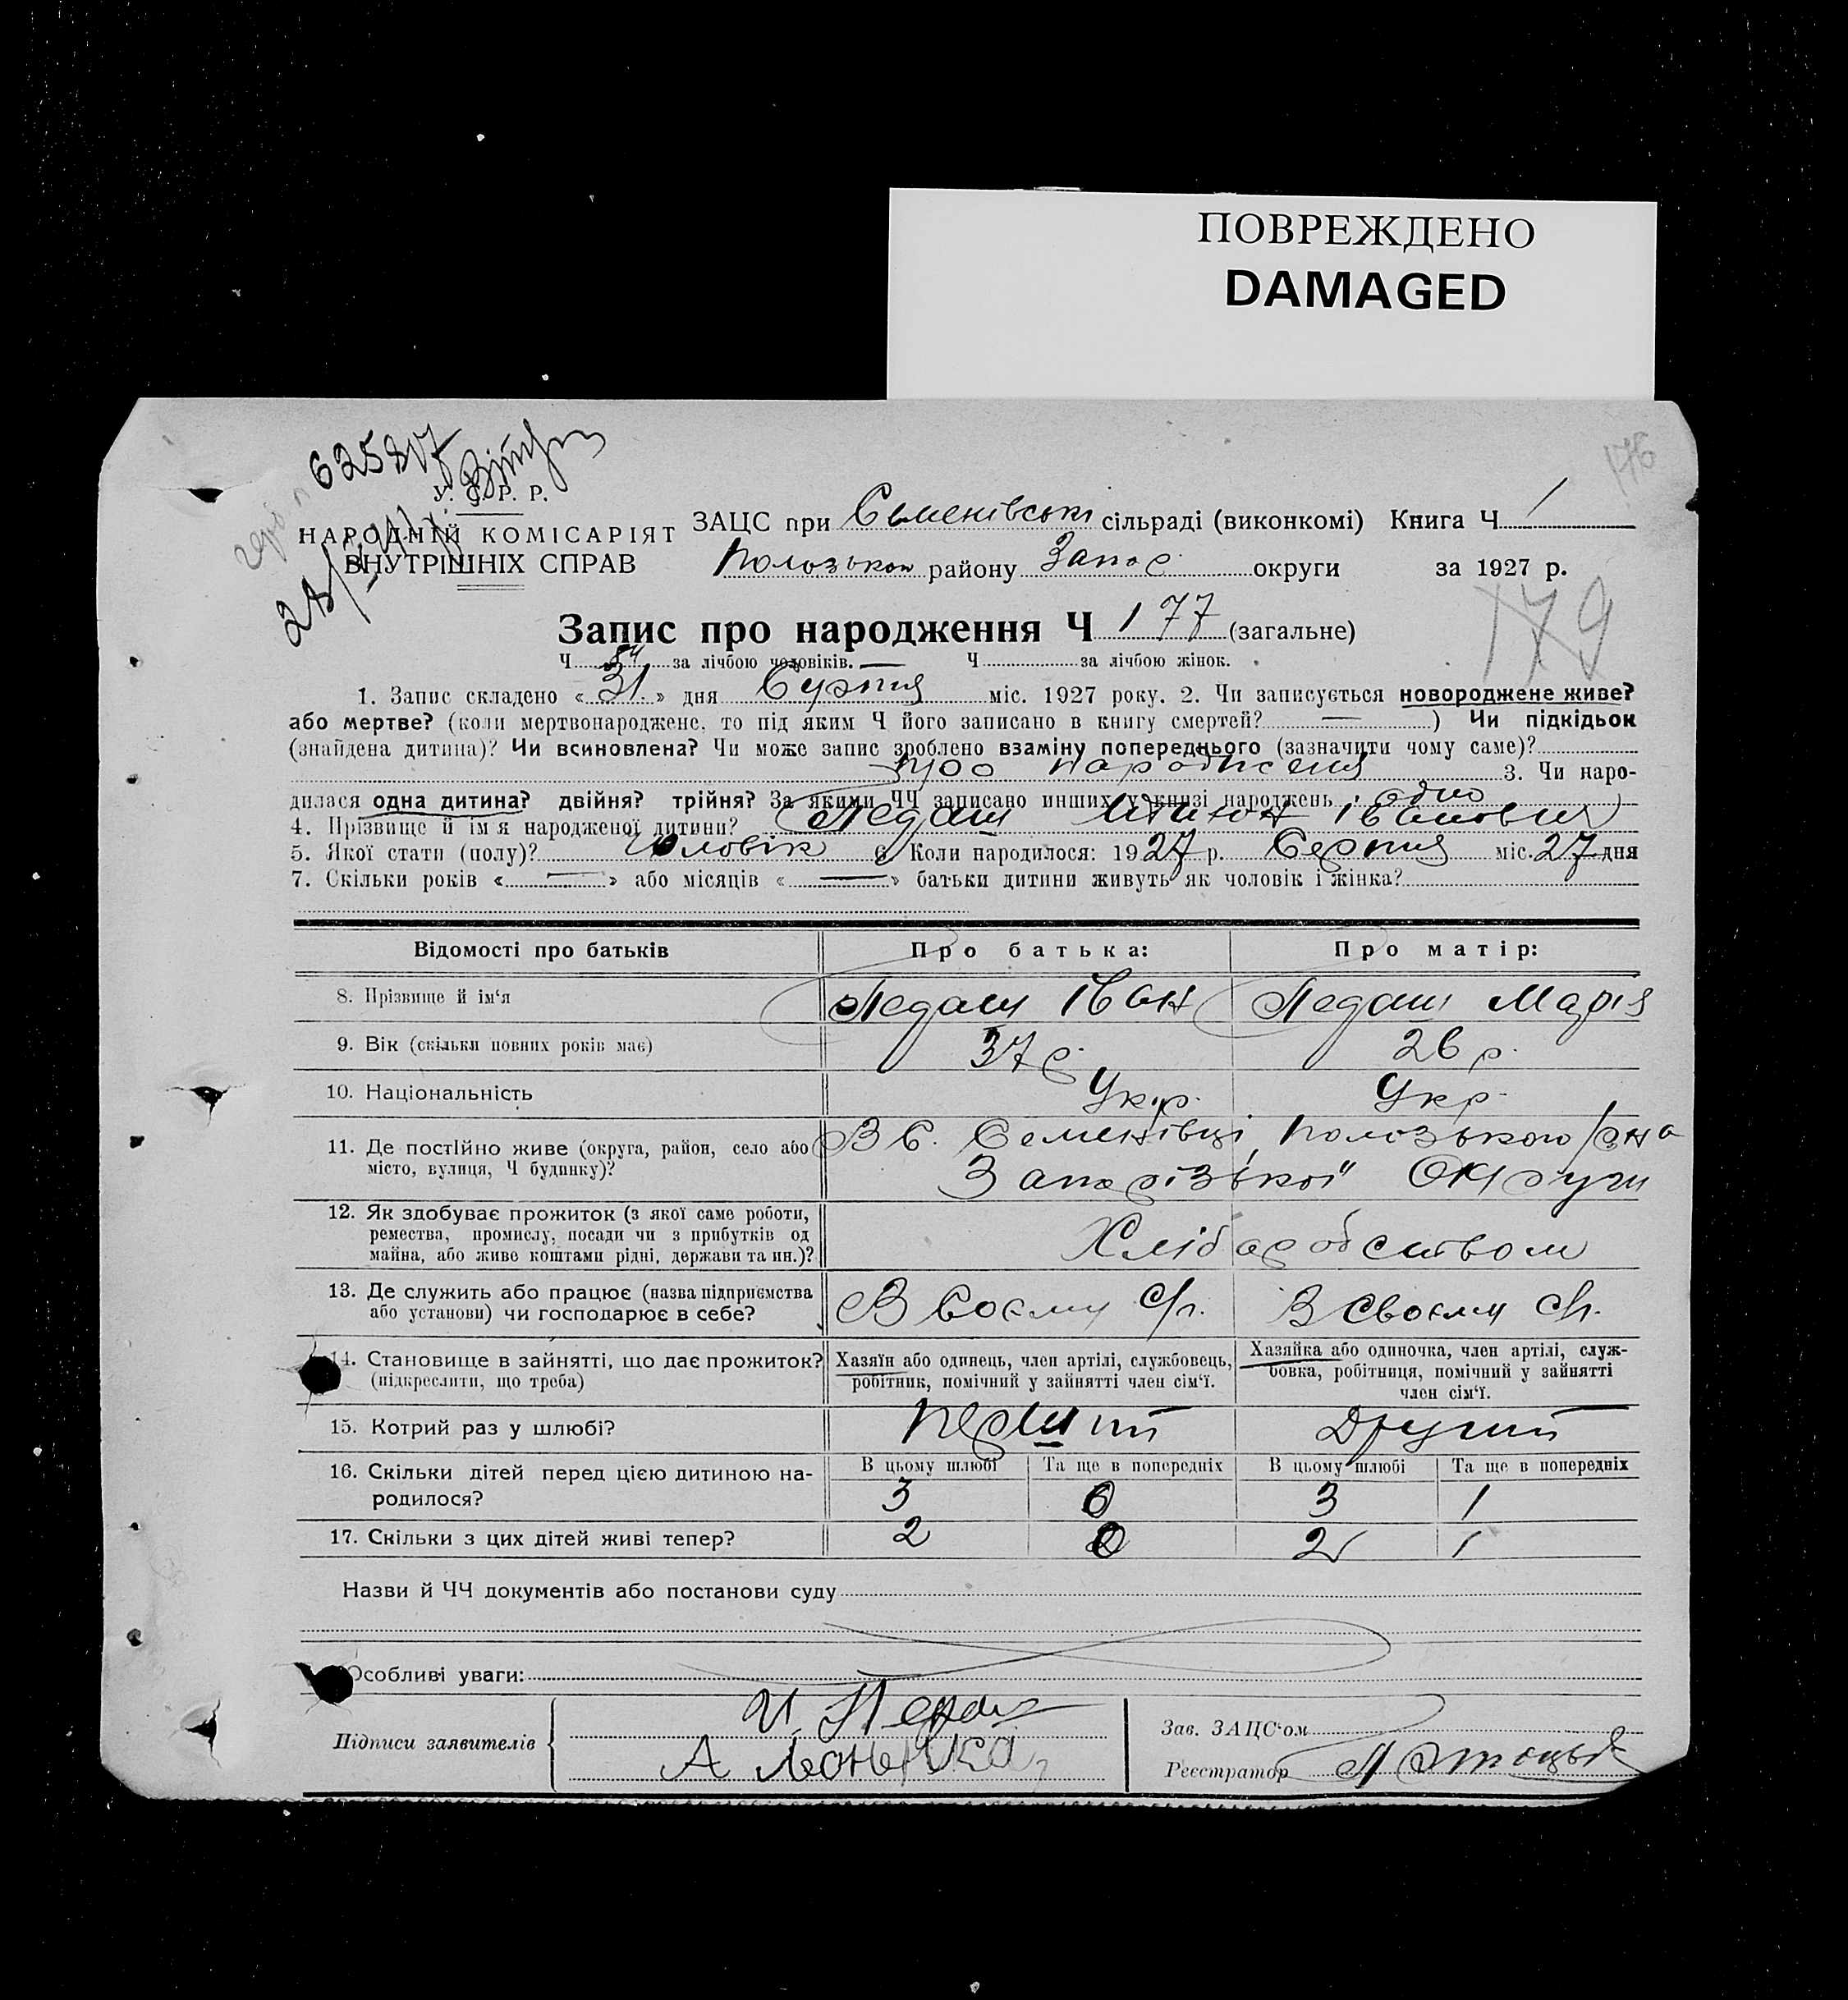 ПОВРЕЖДЕНО
DAMAGED
176
625807
У. С. Р. Р.
НАРОДНІЙ КОМІСАРІЯТ
ВНУТРІШНІХ СПРАВ
ЗАЦС при Семенівські сільраді (виконкомі) Книга Ч 1
Полозькою району Запор. округи за 1927 р.
179
Запис про народження Ч 177 (загальне)
Ч за лічбою чоловіків. — Ч за лічбою жінок.
1. Запис складено « 31 » дня Серпня міс. 1927 року. 2. Чи записується новороджене живе?
або мертве? (коли мертвонароджене, то під яким Ч його записано в книгу смертей? — ) Чи підкідьок
(знайдена дитина)? Чи всиновлена? Чи може запис зроблено взаміну попереднього (зазначити чому саме)?
про народження 3. Чи наро-
дилася одна дитина? двійня? трійня? За якими ЧЧ записано инших у книзі народжень одно
4. Прізвище й ім'я народженої дитини? Педаш Іванович
5. Якої стати (полу)? Чоловік 6. Коли народилося: 1927 р. Серпня міс. 27 дня
7. Скільки років « — » або місяців « — » батьки дитини живуть як чоловік і жінка?
Відомості про батьків Про батька: Про матір:
8. Прізвище й ім'я Педаш Іван Педаш Марія
9. Вік (скільки повних років має) 37 р. 26 р.
10. Національність Укр. Укр.
11. Де постійно живе (округа, район, село або В с. Семенівці, Полозького р/на
місто, вулиця, Ч будинку)? Запорізької Округи
12. Як здобуває прожиток (з якої саме роботи,
ремества, промислу, посади чи з прибутків од Хліборобством
майна, або живе коштами рідні, держави та ин.)?
13. Де служить або працює (назва підприємства В своєму с/г. В своєму с/г.
або установи) чи господарює в себе?
14. Становище в зайнятті, що дає прожиток? Хазяїн або одинець, член артілі, службовець, Хазяйка або одиночка, член артілі, служ-
(підкреслити, що треба) робітник, помічний у зайнятті член сім'ї. бовка, робітниця, помічний у зайнятті
член сім'ї.
15. Котрий раз у шлюбі? Перший Другий
16. Скільки дітей перед цією дитиною на- В цьому шлюбі Та ще в попередніх В цьому шлюбі Та ще в попередніх
родилося? 3 0 3 1
17. Скільки з цих дітей живі тепер? 2 0 2 1
Назви й ЧЧ документів або постанови суду
Особливі уваги:
Підписи заявителів И. Педаш
Зав. ЗАЦС'ом
Реєстратор